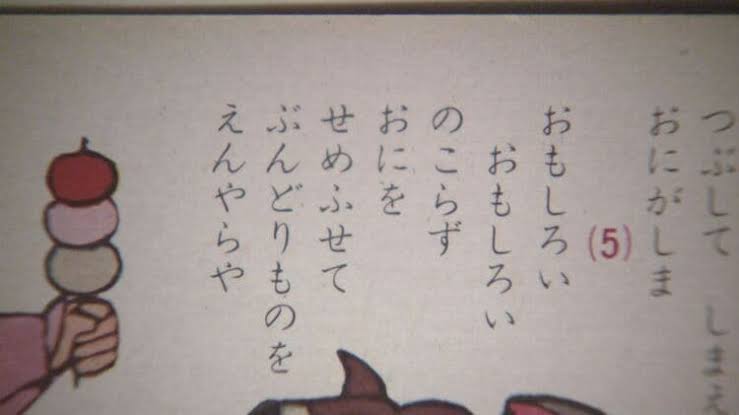 つぶして しま
おにがしま
(5)
おもしろい
おもしろい
のこらず
おにを
せめふせて
ぶんどりものを
えんやらや